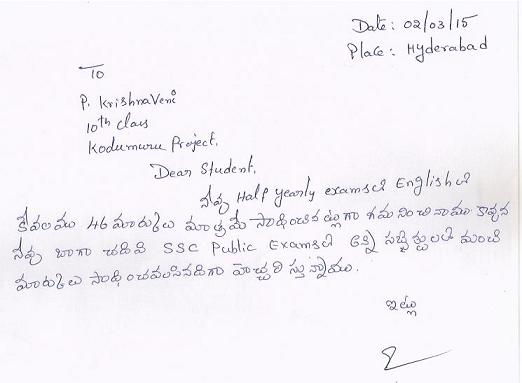 Date: 02/03/15
Place: Hyderabad
To
P. KrishnaVeni
10th class
Kodumuru Project.
Dear Student,
నీవు Half yearly examsలో Englishలో
కేవలము 46 మార్కులు మాత్రమే సాధించినట్లుగా గమనించినాము కావున
నీవు బాగా చదివి SSC Public Examsలో అన్ని సబ్జెక్టులలో మంచి
మార్కులు సాధించవలసినదిగా హెచ్చరిస్తున్నాము.
ఇట్లు